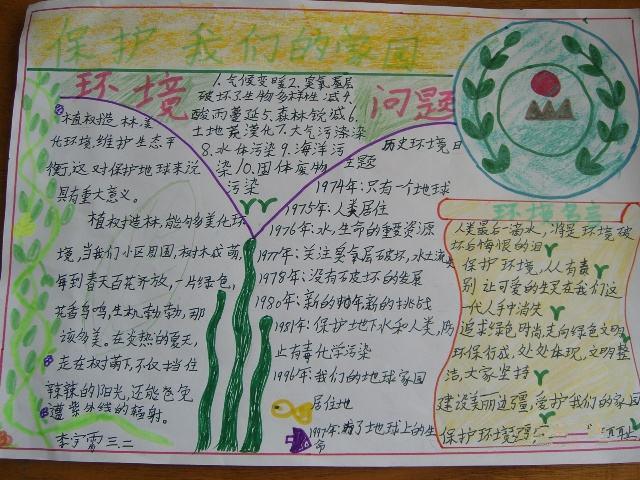 保护我们的家园
环境
问题
1.气候变暖2.臭氧层
破坏3.生物多样性减4.
酸雨蔓延5.森林锐减6.
土地荒漠化7.大气污染
8.水体污染9.海洋污
染10.固体废物
污染
植树造林,美
化环境,维护生态平
衡,这对保护地球来说
具有重大意义。
植树造林,能够美化环
境,当我们小区周围,树木成荫,
每到春天百花齐放,一片绿色,
花香鸟鸣,生机勃勃,那
该多美。在炎热的夏天,
走在树荫下,不仅挡住
辣辣的阳光,还能避免
遭紫外线的辐射。
李宁雷 三.二
历史环境日
主题
1974年:只有一个地球
1975年:人类居住
1976年:水,生命的重要资源
1977年:关注臭氧层破坏,水土流失
1978年:没有破坏的发展
1980年:新的年新的挑战
1981年:保护地下水和人类,防
止有毒化学污染
1996年:我们的地球家园
居住地
1997年:为了地球上的生
命
环境名言
人类最后一滴水,将是环境破
坏后悔恨的泪
保护环境,人人有责
别让可爱的生灵在我们这
一代人手中消失
追求绿色时尚走向绿色文明
环保行动,处处体现,文明整
洁,大家坚持
建设美丽边疆,爱护我们的家园
保护环境